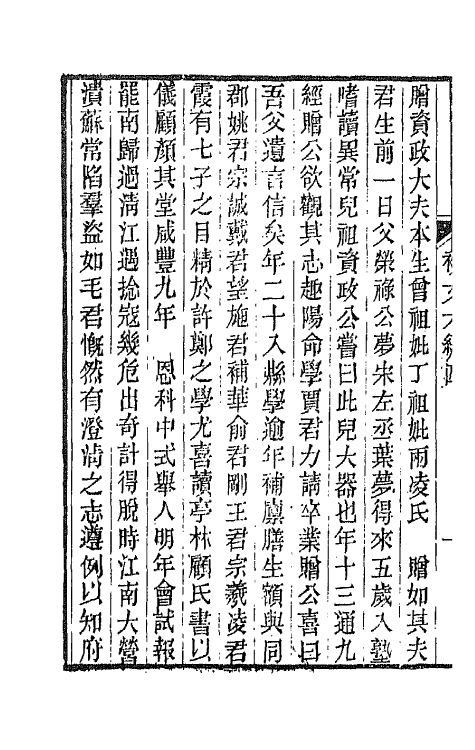 贈資政大夫本生曾祖妣丁祖妣兩凌氏　贈如其夫
君生前一日父榮祿公夢宋左丞葉夢得來五歲入塾
嗜讀異常兒祖資政公嘗曰此兒大器也年十三通九
經贈公欲觀其志趣陽命學賈君力請卒業贈公喜曰
吾父遺言信矣年二十入縣學逾年補廩膳生頷與同
郡姚君宗諴戴君望施君補華俞君剛王君宗羲凌君
霞有七子之目精於許鄭之學尤喜讀亭林顧氏書以
儀顧顏其堂咸豐九年　恩科中式舉人明年會試報
罷南歸過淸江遇捻寇幾危出奇計得脫時江南大營
潰蘇常陷羣盜如毛君慨然有澄淸之志遵例以知府